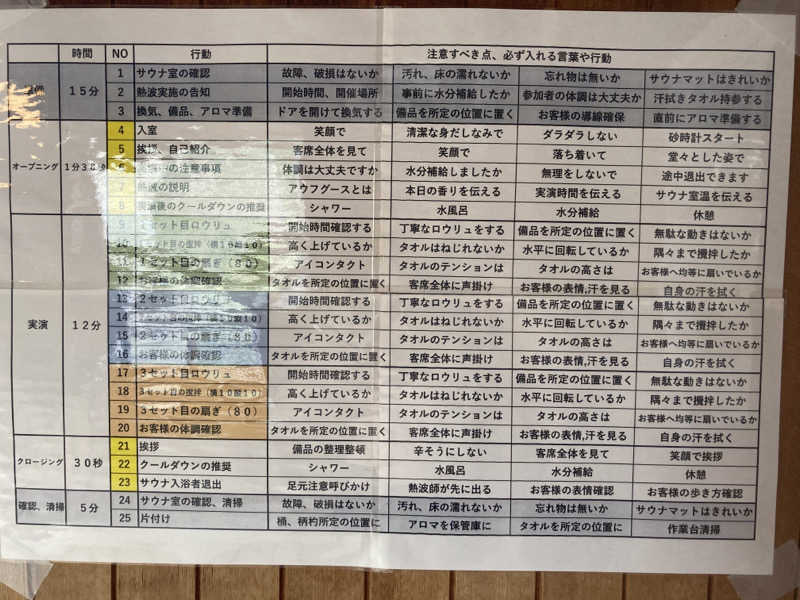 時間 NO 行動 注意すべき点、必ず入れる言葉や行動
15分
1 サウナ室の確認 故障、破損はないか 汚れ、床の濡れないか 忘れ物は無いか サウナマットはきれいか
2 熱波実施の告知 開始時間、開催場所 事前に水分補給したか 参加者の体調は大丈夫か 汗拭きタオル持参する
3 換気、備品、アロマ準備 ドアを開けて換気する 備品を所定の位置に置く お客様の導線確保 直前にアロマ準備する
オープニング 1分30秒
4 入室 笑顔で 清潔な身だしなみで ダラダラしない 砂時計スタート
5 挨拶、自己紹介 客席全体を見て 笑顔で 落ち着いて 堂々とした姿で
6 の注意事項 体調は大丈夫ですか 水分補給しましたか 無理をしないで 途中退出できます
7 熱波の説明 アウフグースとは 本日の香りを伝える 実演時間を伝える サウナ室温を伝える
8 実演後のクールダウンの推奨 シャワー 水風呂 水分補給 休憩
実演 12分
9 1セット目ロウリュ 開始時間確認する 丁寧なロウリュをする 備品を所定の位置に置く 無駄な動きはないか
10 1セット目の撹拌(横10縦10) 高く上げているか タオルはねじれないか 水平に回転しているか 隅々まで攪拌したか
11 1セット目の扇ぎ(80) アイコンタクト タオルのテンションは タオルの高さは お客様へ均等に扇いでいるか
12 お客様の体調確認 タオルを所定の位置に置く 客席全体に声掛け お客様の表情,汗を見る 自身の汗を拭く
13 2セット目ロウリュ 開始時間確認する 丁寧なロウリュをする 備品を所定の位置に置く 無駄な動きはないか
14 2セット目の撹拌(横10縦10) 高く上げているか タオルはねじれないか 水平に回転しているか 隅々まで攪拌したか
15 2セット目の扇ぎ(80) アイコンタクト タオルのテンションは タオルの高さは お客様へ均等に扇いでいるか
16 お客様の体調確認 タオルを所定の位置に置く 客席全体に声掛け お客様の表情,汗を見る 自身の汗を拭く
17 3セット目ロウリュ 開始時間確認する 丁寧なロウリュをする 備品を所定の位置に置く 無駄な動きはないか
18 3セット目の撹拌(横10縦10) 高く上げているか タオルはねじれないか 水平に回転しているか 隅々まで攪拌したか
19 3セット目の扇ぎ(80) アイコンタクト タオルのテンションは タオルの高さは お客様へ均等に扇いでいるか
20 お客様の体調確認 タオルを所定の位置に置く 客席全体に声掛け お客様の表情,汗を見る 自身の汗を拭く
クロージング 30秒
21 挨拶 備品の整理整頓 辛そうにしない 客席全体を見て 笑顔で挨拶
22 クールダウンの推奨 シャワー 水風呂 水分補給 休憩
23 サウナ入浴者退出 足元注意呼びかけ 熱波師が先に出る お客様の表情確認 お客様の歩き方確認
確認、清掃 5分
24 サウナ室の確認、清掃 故障、破損はないか 汚れ、床の濡れないか 忘れ物は無いか サウナマットはきれいか
25 片付け 桶、柄杓所定の位置に アロマを保管庫に タオルを所定の位置に 作業台清掃